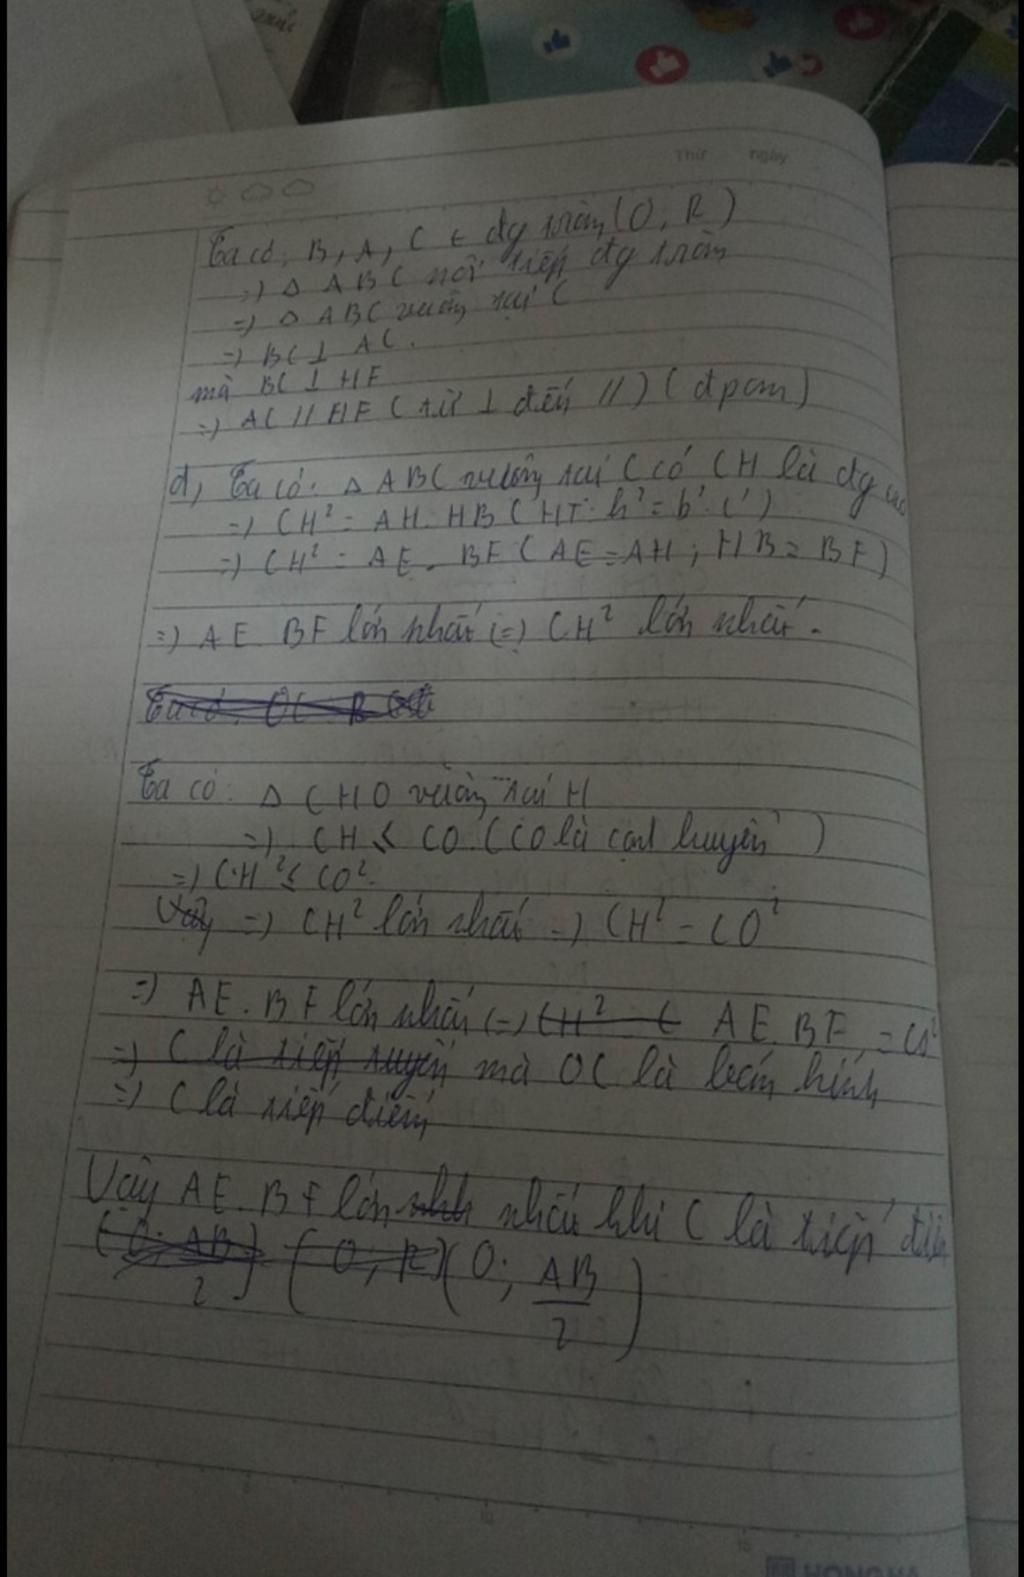 Thứ ngày
Ta có: B, A, C ∈ đg tròn (O, R)
=) Δ ABC nội tiếp đg tròn
=) Δ ABC vuông tại C
=) BC ⊥ AC.
mà BC ⊥ HF
=) AC // HF (từ ⊥ đến //) (đpcm)
d, Ta có: Δ ABC vuông tại C có CH là đg cao
=) CH² = AH. HB (HT: h² = b'. c')
=) CH² = AE. BF (AE = AH; HB = BF)
=) AE BF lớn nhất (=) CH² lớn nhất.
Ta có: OC R
Ta có: Δ CHO vuông tại H
=) CH ≤ CO. (CO là cạnh huyền)
=) CH² ≤ CO²
Vậy =) CH² lớn nhất =) CH² = CO²
=) AE. BF lớn nhất (=) CH² = C AE. BF = CO²
=) C là tiếp tuyến mà OC là bán kính
=) C là tiếp điểm
Vậy AE. BF lớn nhất khi C là tiếp điểm
(O; AB/2) (O; R) (O; AB/2)
HONG HA